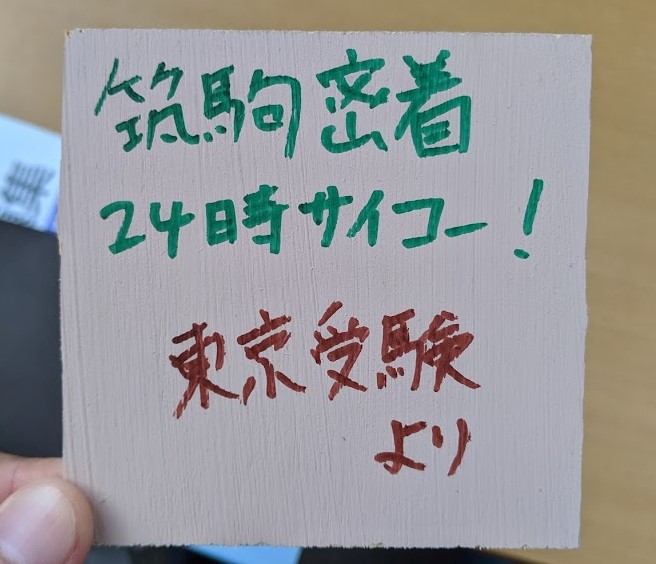 筑駒密着
24時サイコー!
東京受験
より
集